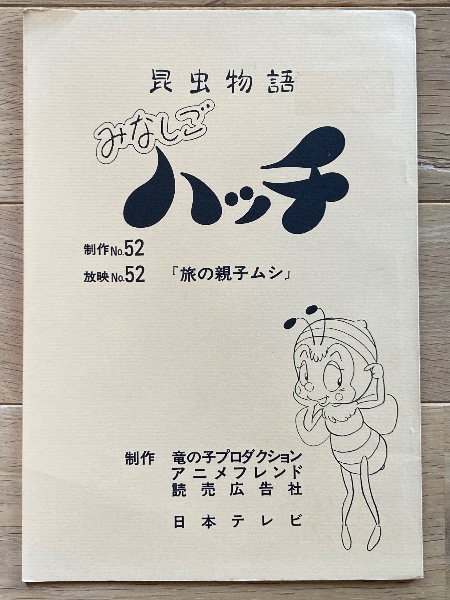 昆虫物語
みなしご
ハッチ
制作No.52
放映No.52 『旅の親子ムシ』
制作 竜の子プロダクション
アニメフレンド
読売広告社
日本テレビ